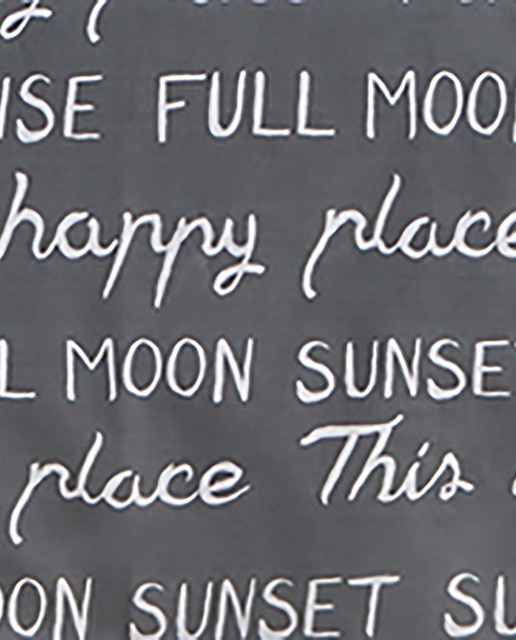 ISE FULL MOO
happy place
L MOON SUNSE
place This
OON SUNSET SU